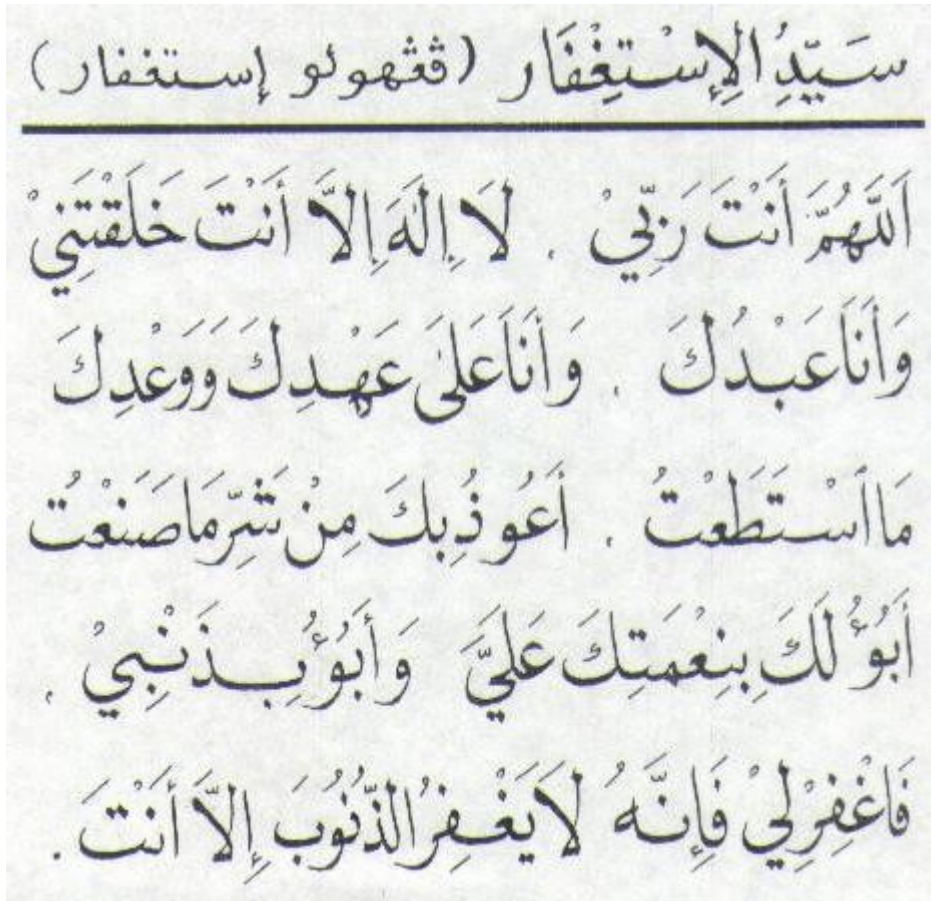 سَيِّدُ الْإِسْتِغْفَار (ڤڠهولو إستغفار)
اَللَّهُمَّ أَنْتَ رَبِّيْ . لَا إِلٰهَ إِلَّا أَنْتَ خَلَقْتَنِيْ
وَأَنَا عَبْدُكَ . وَأَنَا عَلَى عَهْدِكَ وَوَعْدِكَ
مَا اسْتَطَعْتُ . أَعُوذُ بِكَ مِنْ شَرِّ مَا صَنَعْتُ
أَبُوْءُ لَكَ بِنِعْمَتِكَ عَلَيَّ وَأَبُوْءُ بِذَنْبِيْ .
فَاغْفِرْلِيْ فَإِنَّهُ لَا يَغْفِرُ الذُّنُوْبَ إِلَّا أَنْتَ .